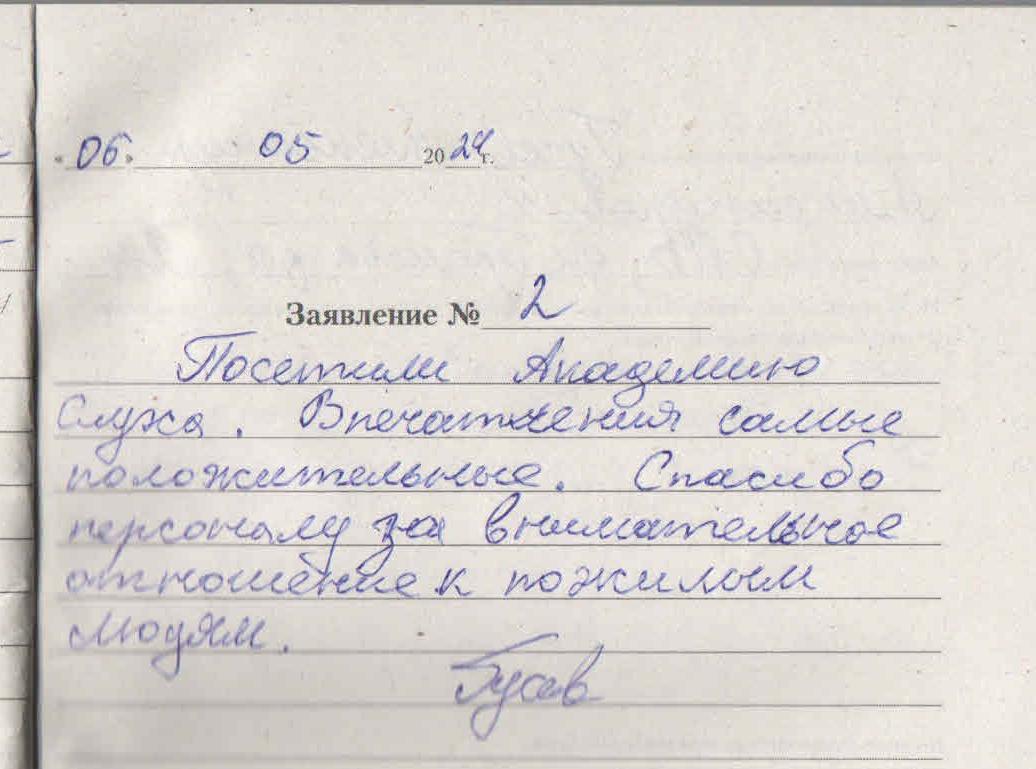 "06" 05 2024г.
Заявление № 2
Посетили Академию
Слуха. Впечатления самые
положительные. Спасибо
персоналу за внимательное
отношение к пожилым
людям.
Гусев